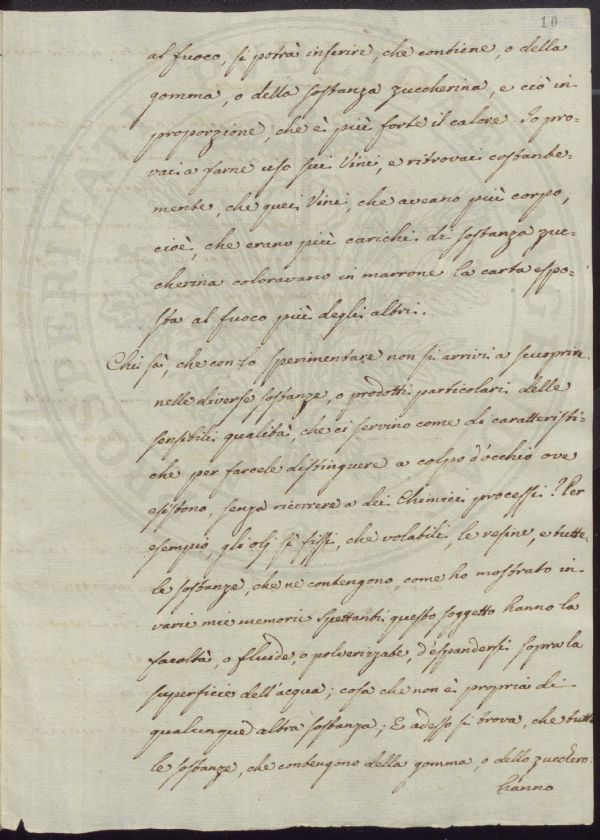 10
al fuoco, si potrà inferire, che contiene, o della
gomma, o della sostanza zuccherina, e ciò in
proporzione, che è più forte il calore. Io pro-
vai a farne uso sui Vini, e ritrovai costante-
mente, che quei Vini, che aveano più corpo,
cioè, che erano più carichi di sostanza zuc-
cherina coloravano in marrone la carta espo-
sta al fuoco più degli altri.
Chi sà, che con lo sperimentare non si arrivi a scuoprir
nelle diverse sostanze, o prodotti particolari delle
sensibili qualità, che ci servino come di caratteristi-
che per farcele distinguere a colpo d'occhio ove
esistono, senza ricorrere a dei Chimici processi? Per
esempio, gli olj sì fissi, che volatili, le resine, e tutte
le sostanze, che ne contengono, come ho mostrato in
varie mie memorie spettanti questo soggetto hanno la
facoltà, o fluide, o polverizzate, d'espandersi sopra la
superficie dell'acqua; cosa che non è propria di
qualunque altra sostanza; E adesso si trova, che tutte
le sostanze, che contengono della gomma, o dello zucchero
hanno